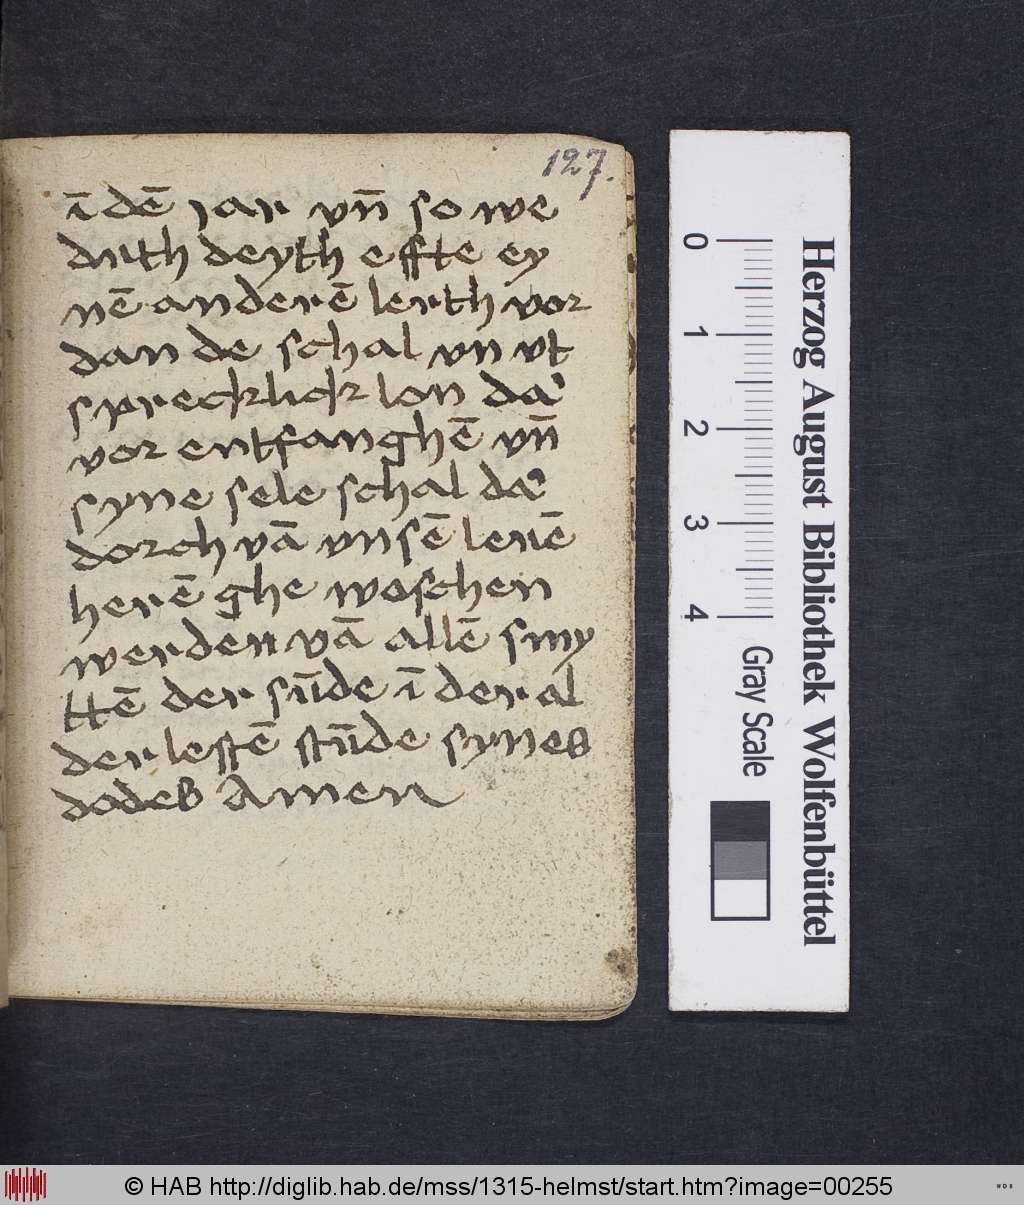 127.
ī dē iar vn̄ so we
duth deyth effte ey
nē anderē lerth vor
dan de schal vn vt
sprecklick lon da'
vor entfanghē vn̄
syne sele schal da'
dorch vā vnsē leuē
herē ghe waschen
werden vā allē smy
ttē der sūde ī der al
der lestē stūde synes
dodes Amen
0 1 2 3 4
Gray Scale
Herzog August Bibliothek Wolfenbüttel
© HAB http://diglib.hab.de/mss/1315-helmst/start.htm?image=00255